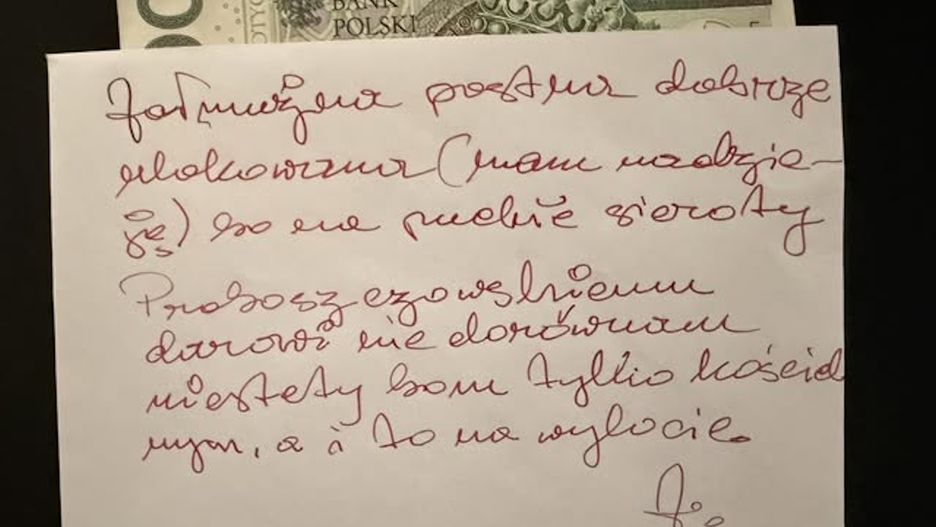 BANK
POLSKI
Jałmużna postna dobrze
ulokowana (mam nadzie-
ję) bo na sieroty
Proboszczowskiemu
darowi nie dorównam
niestety bom tylko kościel
nym, a i to na wylocie.